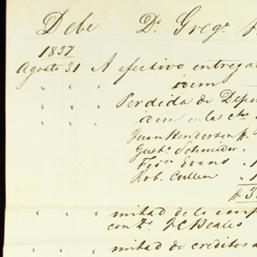 Debe Dr. Grego.
1837
Agosto 31 A efectivo entrega
" " " idem
" " " Perdida de Depo
" " " idem en las cta.
Juan Henderson
Gusto. Schneider
Evans
Rob. Cullen
" " " mitad de la emp
con Dr. J C Beales
" " " mitad de creditos a